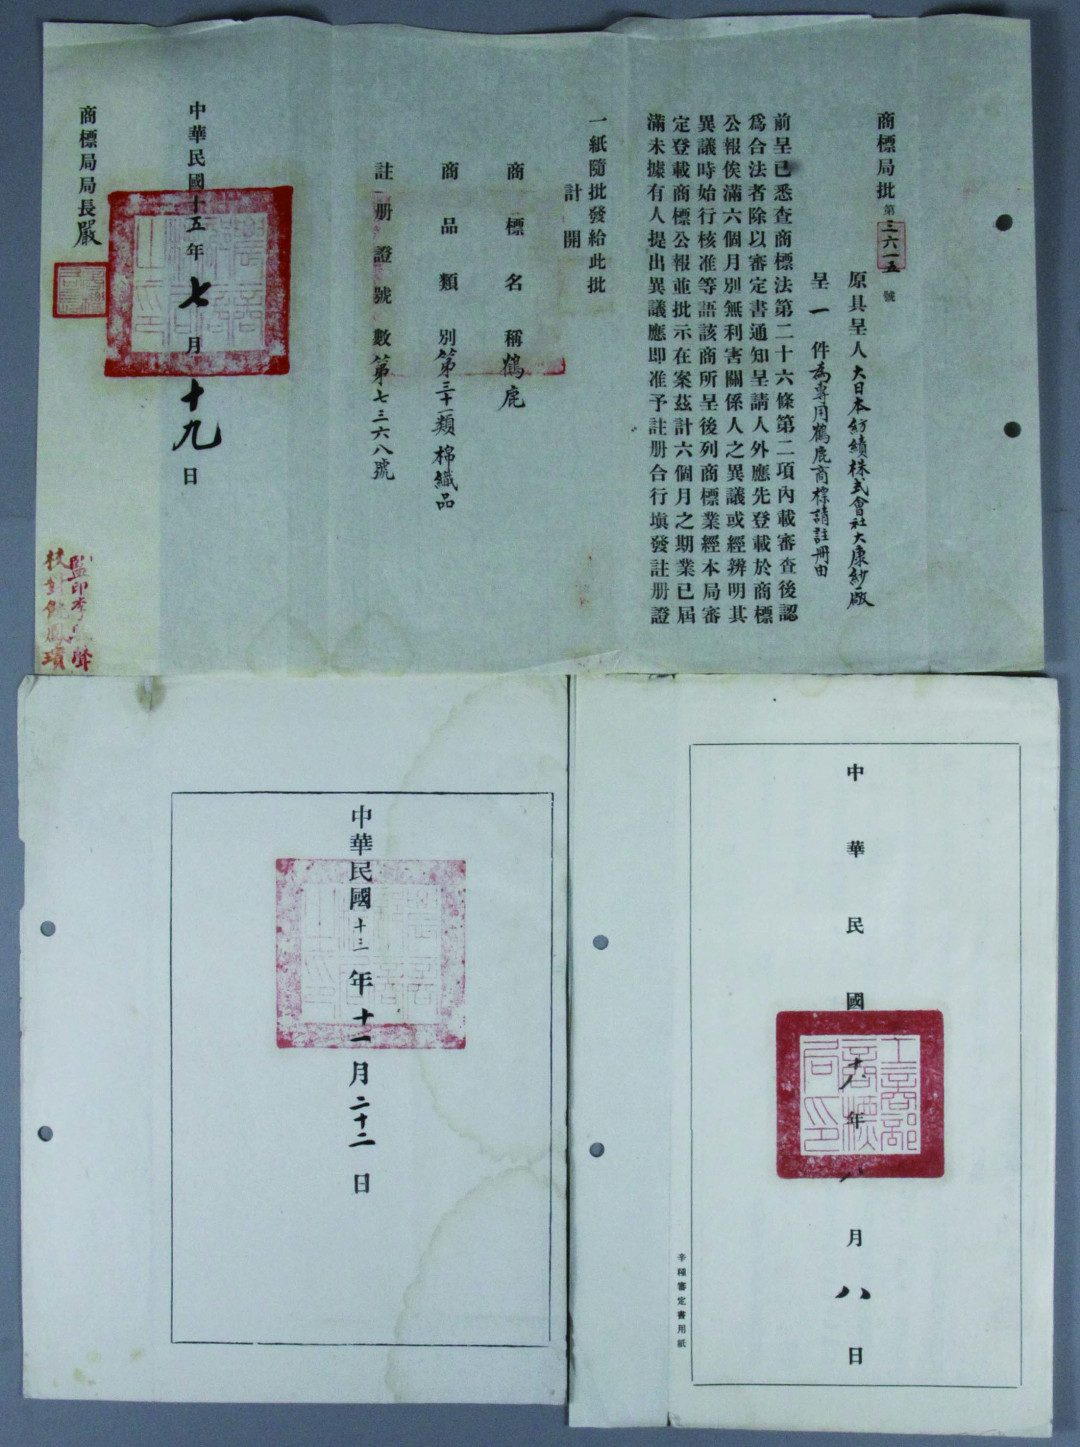 商標局批第三六一五號
原具呈人大日本紡績株式會社大康紗廠
呈一件為專用鶴鹿商標請註冊由
前呈已悉查商標法第二十六條第二項內載審查後認
爲合法者除以審定書通知呈請人外應先登載於商標
公報俟滿六個月別無利害關係人之異議或經辨明其
異議時始行核准等語該商所呈後列商標業經本局審
定登載商標公報並批示在案茲計六個月之期業已屆
滿未據有人提出異議應即准予註册合行塡發註册證
一紙隨批發給此批
計開
商標名稱鶴鹿
商品類別第三十一類棉織品
註册證號數第七三六八號
中華民國十五年七月十九日
商標局局長嚴
監印李聲
校對鳳璸
中華民國十三年十一月二十二日
中華民國十八年八月八日
工商部商標局印
辛種審定書用紙